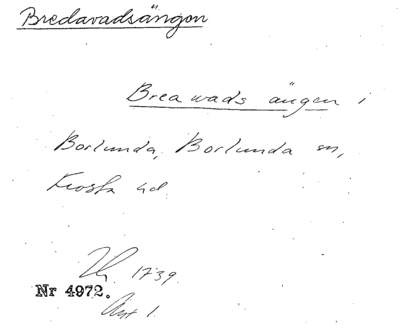 Bredavadsängen
Breawads ängen i
Borlunda, Borlunda sn,
Frosta hd.
1739.
Nr 4972.
Akt 1.